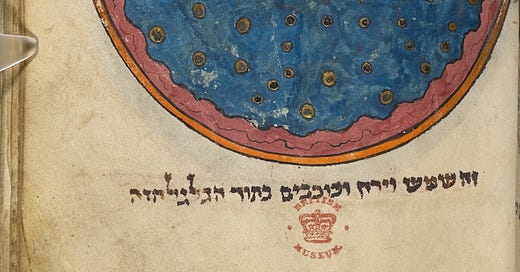 זה שמש וירח וכוכבים בתוך הגלגל הזה
BRITISH
MUSEUM